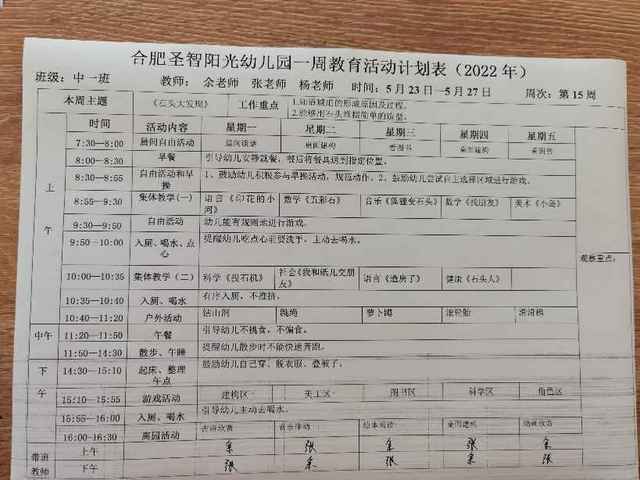 合肥圣智阳光幼儿园一周教育活动计划表（2022 年）
班级：中一班 教师： 余老师 张老师 杨老师 时间：5 月 23 日—5 月 27 日 周次：第 15 周
本周主题 《石头大发现》 工作重点 1.知道城市的形成原因及过程。
时间 活动内容 星期一 星期二 星期三 星期四 星期五
7:30—8:00 晨间自由活动
8:00—8:30 早餐 引导幼儿安静就餐，餐后将餐具送到指定位置。
8:30—8:55 自由活动和早操 1、鼓励幼儿积极参与早操活动，规范动作。2、鼓励幼儿尝试自主选择区域进行游戏。
上
8:55—9:30 集体教学（一） 语言《印花的小河》 数学《五彩石》 音乐《狐狸变石头》 数学《找朋友》 美术《小岛》
午
9:30—9:50 自由活动 幼儿能有规则地进行游戏。
9:50—10:00 入厕、喝水、点心 提醒幼儿吃点心前要洗手，主动去喝水。
观察重点：
10:00—10:35 集体教学（二） 科学《投石机》 社会《我和纸儿交朋友》 语言《造房子》 健康《石头人》
10:35—10:40 入厕、喝水 有序入厕，不推挤。
10:40—11:20 户外活动 钻山洞 跳绳 萝卜蹲 滚轮胎 滑滑梯
中午 11:20—11:50 午餐 引导幼儿不挑食，不偏食。
11:50—14:30 散步、午睡 提醒幼儿散步时不能快速奔跑。
下 14:30—15:10 起床、整理午点 鼓励幼儿自己穿、脱衣服、叠被子。
午
15:10—15:55 游戏活动 建构区 美工区 图书区 科学区 角色区
15:55—16:00 入厕、喝水 引导幼儿主动去喝水。
16:00—16:30 离园活动
带班教师 上午 余 张 余 张 余
下午 张 余 张 余 张